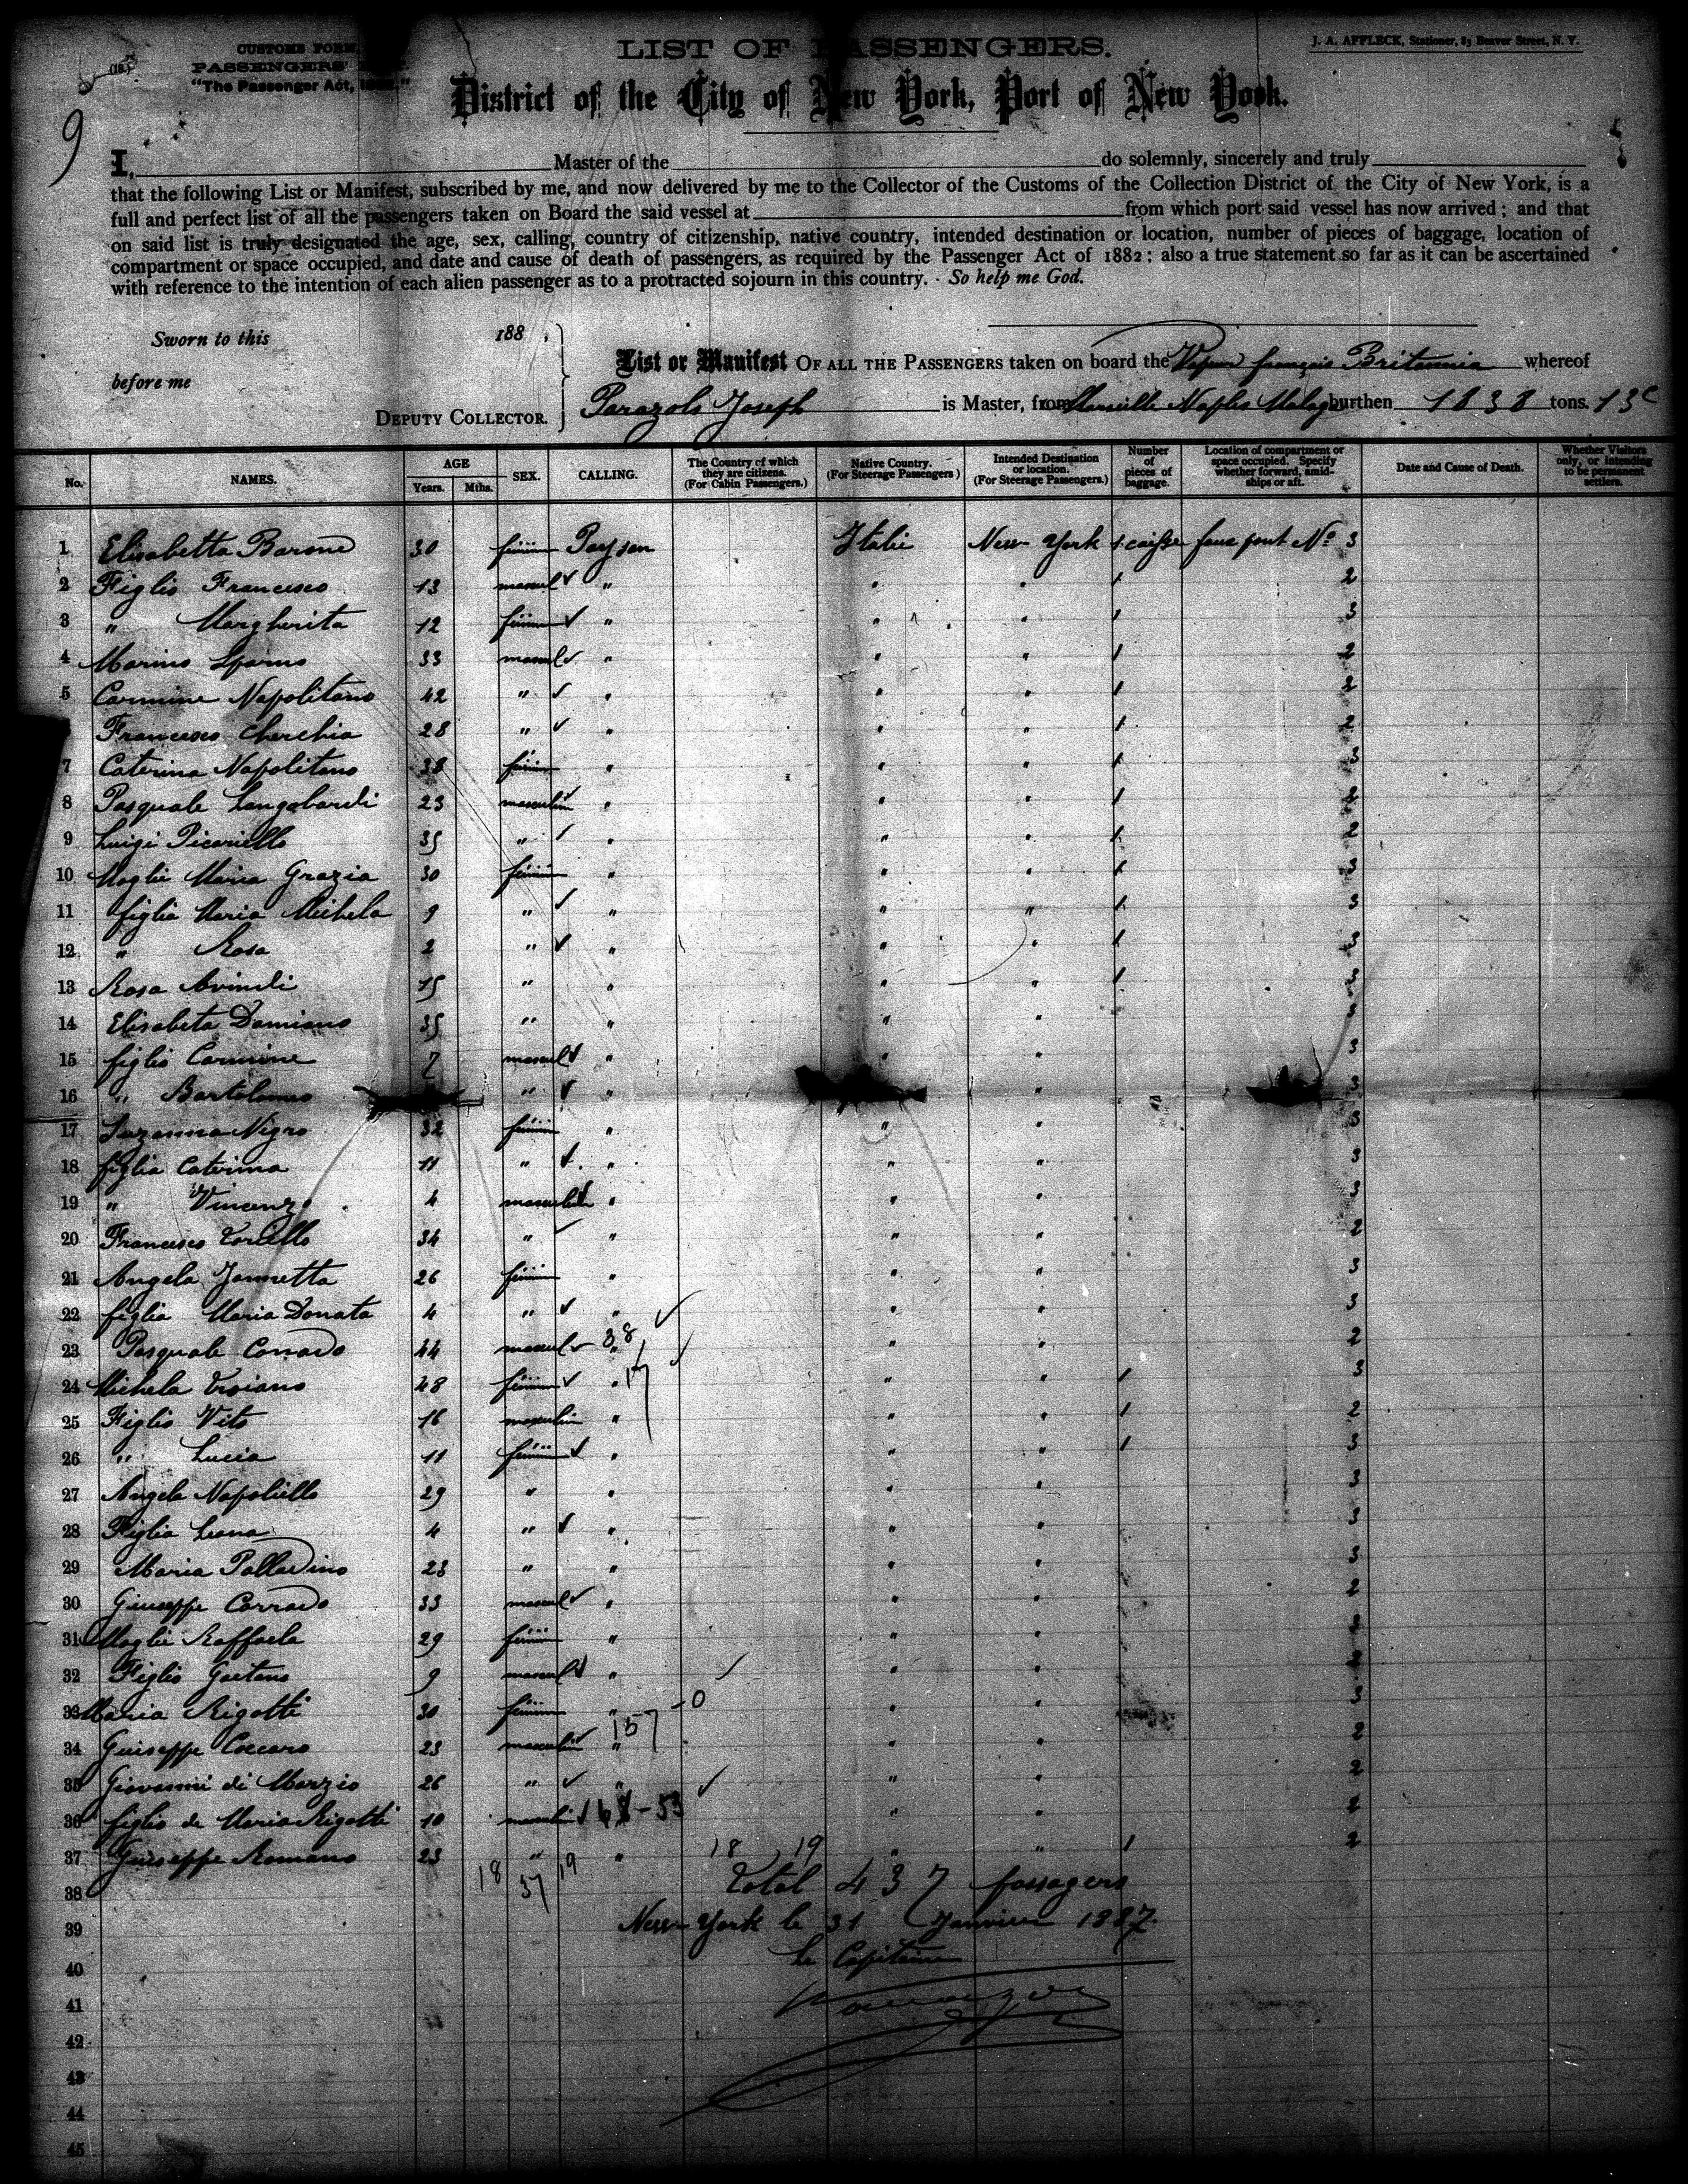 CUSTOMS FORM.
LIST OF PASSENGERS.
J. A. AFFLECK, Stationer, 83 Beaver Street, N. Y.
PASSENGERS'
"The Passenger Act,
District of the City of New York, Port of New York.
9
I, Master of the do solemnly, sincerely and truly
that the following List or Manifest, subscribed by me, and now delivered by me to the Collector of the Customs of the Collection District of the City of New York, is a
full and perfect list of all the passengers taken on Board the said vessel at from which port said vessel has now arrived; and that
on said list is truly designated the age, sex, calling, country of citizenship, native country, intended destination or location, number of pieces of baggage, location of
compartment or space occupied, and date and cause of death of passengers, as required by the Passenger Act of 1882; also a true statement so far as it can be ascertained
with reference to the intention of each alien passenger as to a protracted sojourn in this country. So help me God.
Sworn to this 188 .
before me
DEPUTY COLLECTOR.
List or Manifest OF ALL THE PASSENGERS taken on board the Vapeur français Britannia whereof
Parazols Joseph is Master, from Marseille Naples Malaga burthen 1838 tons. 13c
No. NAMES. AGE Years. Mths. SEX. CALLING. The Country of which they are citizens. (For Cabin Passengers.) Native Country. (For Steerage Passengers) Intended Destination or location. (For Steerage Passengers.) Number of pieces of baggage. Location of compartment or space occupied. Specify whether forward, amidships or aft. Date and Cause of Death. Whether Visitors only, or Intending to be permanent settlers.
1 Elisabetta Barone 30 fémin Paysan Italie New York 1 caisse faux pont No 3
2 Figlio Francesco 13 mascul " " " 1 2
3 " Margherita 12 fémin " " " 1 3
4 Marino 33 mascul " " " 1 2
5 Carmine Napolitano 42 " " " " 1 2
Francesco Cherchia 28 " " " " 1 2
7 Caterina Napolitano 38 fémin " " " 1 3
8 Pasquale Langobardi 23 masculin " " " 1 2
9 Luigi Picariello 35 " " " " 1 2
10 Moglie Maria Grazia 30 fémin " " " 1 3
11 figlia Maria Michela 9 " " " " 1 3
12 " Rosa 2 " " " " 1 3
13 Rosa 15 " " " " 1 3
14 Elisabeta Damiano 35 " " " " 3
15 figlio Carmine 7 mascul " " " 3
16 " Bartolomeo " " " " 3
17 Suzanna Nigro 32 fémin " " " 3
18 figlia Caterina 11 " " " " 3
19 " Vincenzo 4 masculin " " " 3
20 Francesco Toriello 34 " " " " 2
21 Angela Jannetta 26 fémin " " " 3
22 figlia Maria Donata 4 " " " " 3
23 Pasquale Conrado 44 mascul 38 " " " 2
24 Michela Troiano 48 fémin " 17 " " 1 3
25 Figlio Vito 16 masculin " " " 1 2
26 " Lucia 11 fémin " " " 1 3
27 Angela Napoliello 29 " " " " 3
28 Figlia 4 " " " " 3
29 Maria Palladino 23 " " " " 3
30 Giuseppe Corrado 33 mascul " " " 2
31 Moglie Raffaela 29 fémin " " "
32 Figlio Gaetano 9 mascul " " " 2
33 Maria Rigotti 30 fémin " 0 " " 3
34 Guiseppe Coccaro 23 masculin " 157 " " 2
35 Giovanni di Marzio 26 " " " " 2
36 figlio de Maria Rigotti 10 masculin 53 " " 2
37 Guiseppe Romano 23 " " 18 19 " " 1 2
38 18 37 19 Total 437 passagers
39 New-York le 31 Janvier 1887.
40 Le Capitaine
41
42
43
44
45